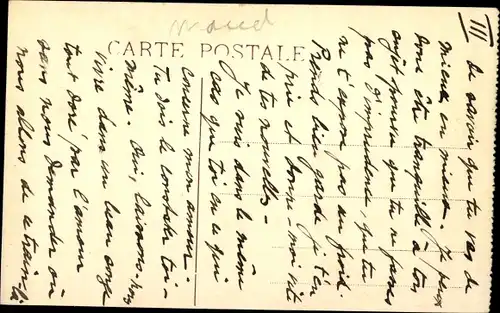 III
CARTE POSTALE
de savoir que tu vas de
mieux en mieux. Je peux
donc être tranquille à ton
sujet pourvu que tu ne fasses
pas d'imprudence, que tu
ne t'expose pas au froid.
Prends bien garde je t'en
prie et donne-moi vite
de tes nouvelles -
Je suis dans le même
cas que toi en ce qui
concerne mon amour.
Tu dois le constater toi-
même. Oui, laissons-nous
vivre dans un songe
tout doré par l'amour
sans nous demander où
nous allons de ce train-là